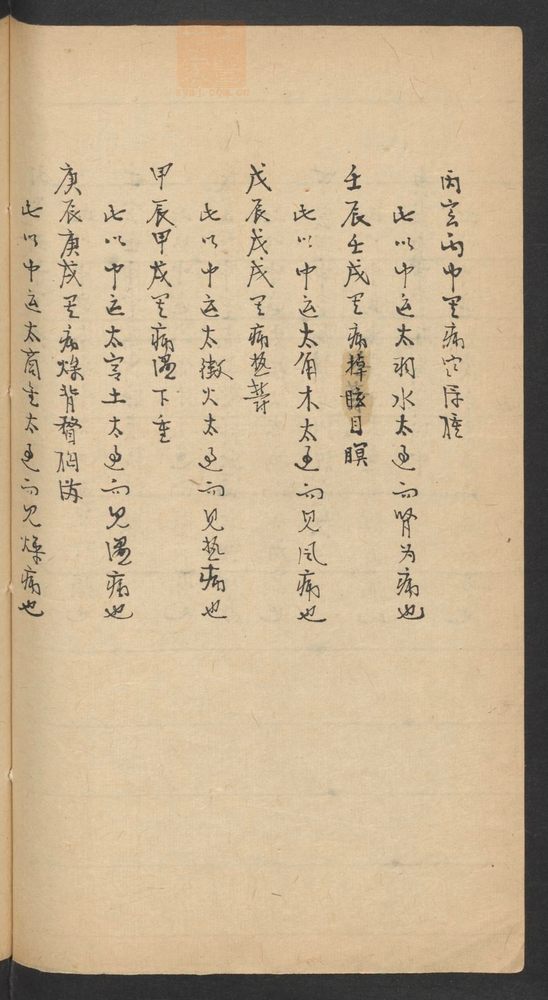 丙寅丙申其病寒浮腫
此以中運太羽水太過而腎為病也
壬辰壬戌其病掉眩目瞑
此以中運太角木太過而見風病也
戊辰戊戌其病熱鬱
此以中運太徵火太過而見熱病也
甲辰甲戌其病濕下重
此以中運太宮土太過而見濕病也
庚辰庚戌其病燥背瞀胸滿
此以中運太商金太過而見燥病也